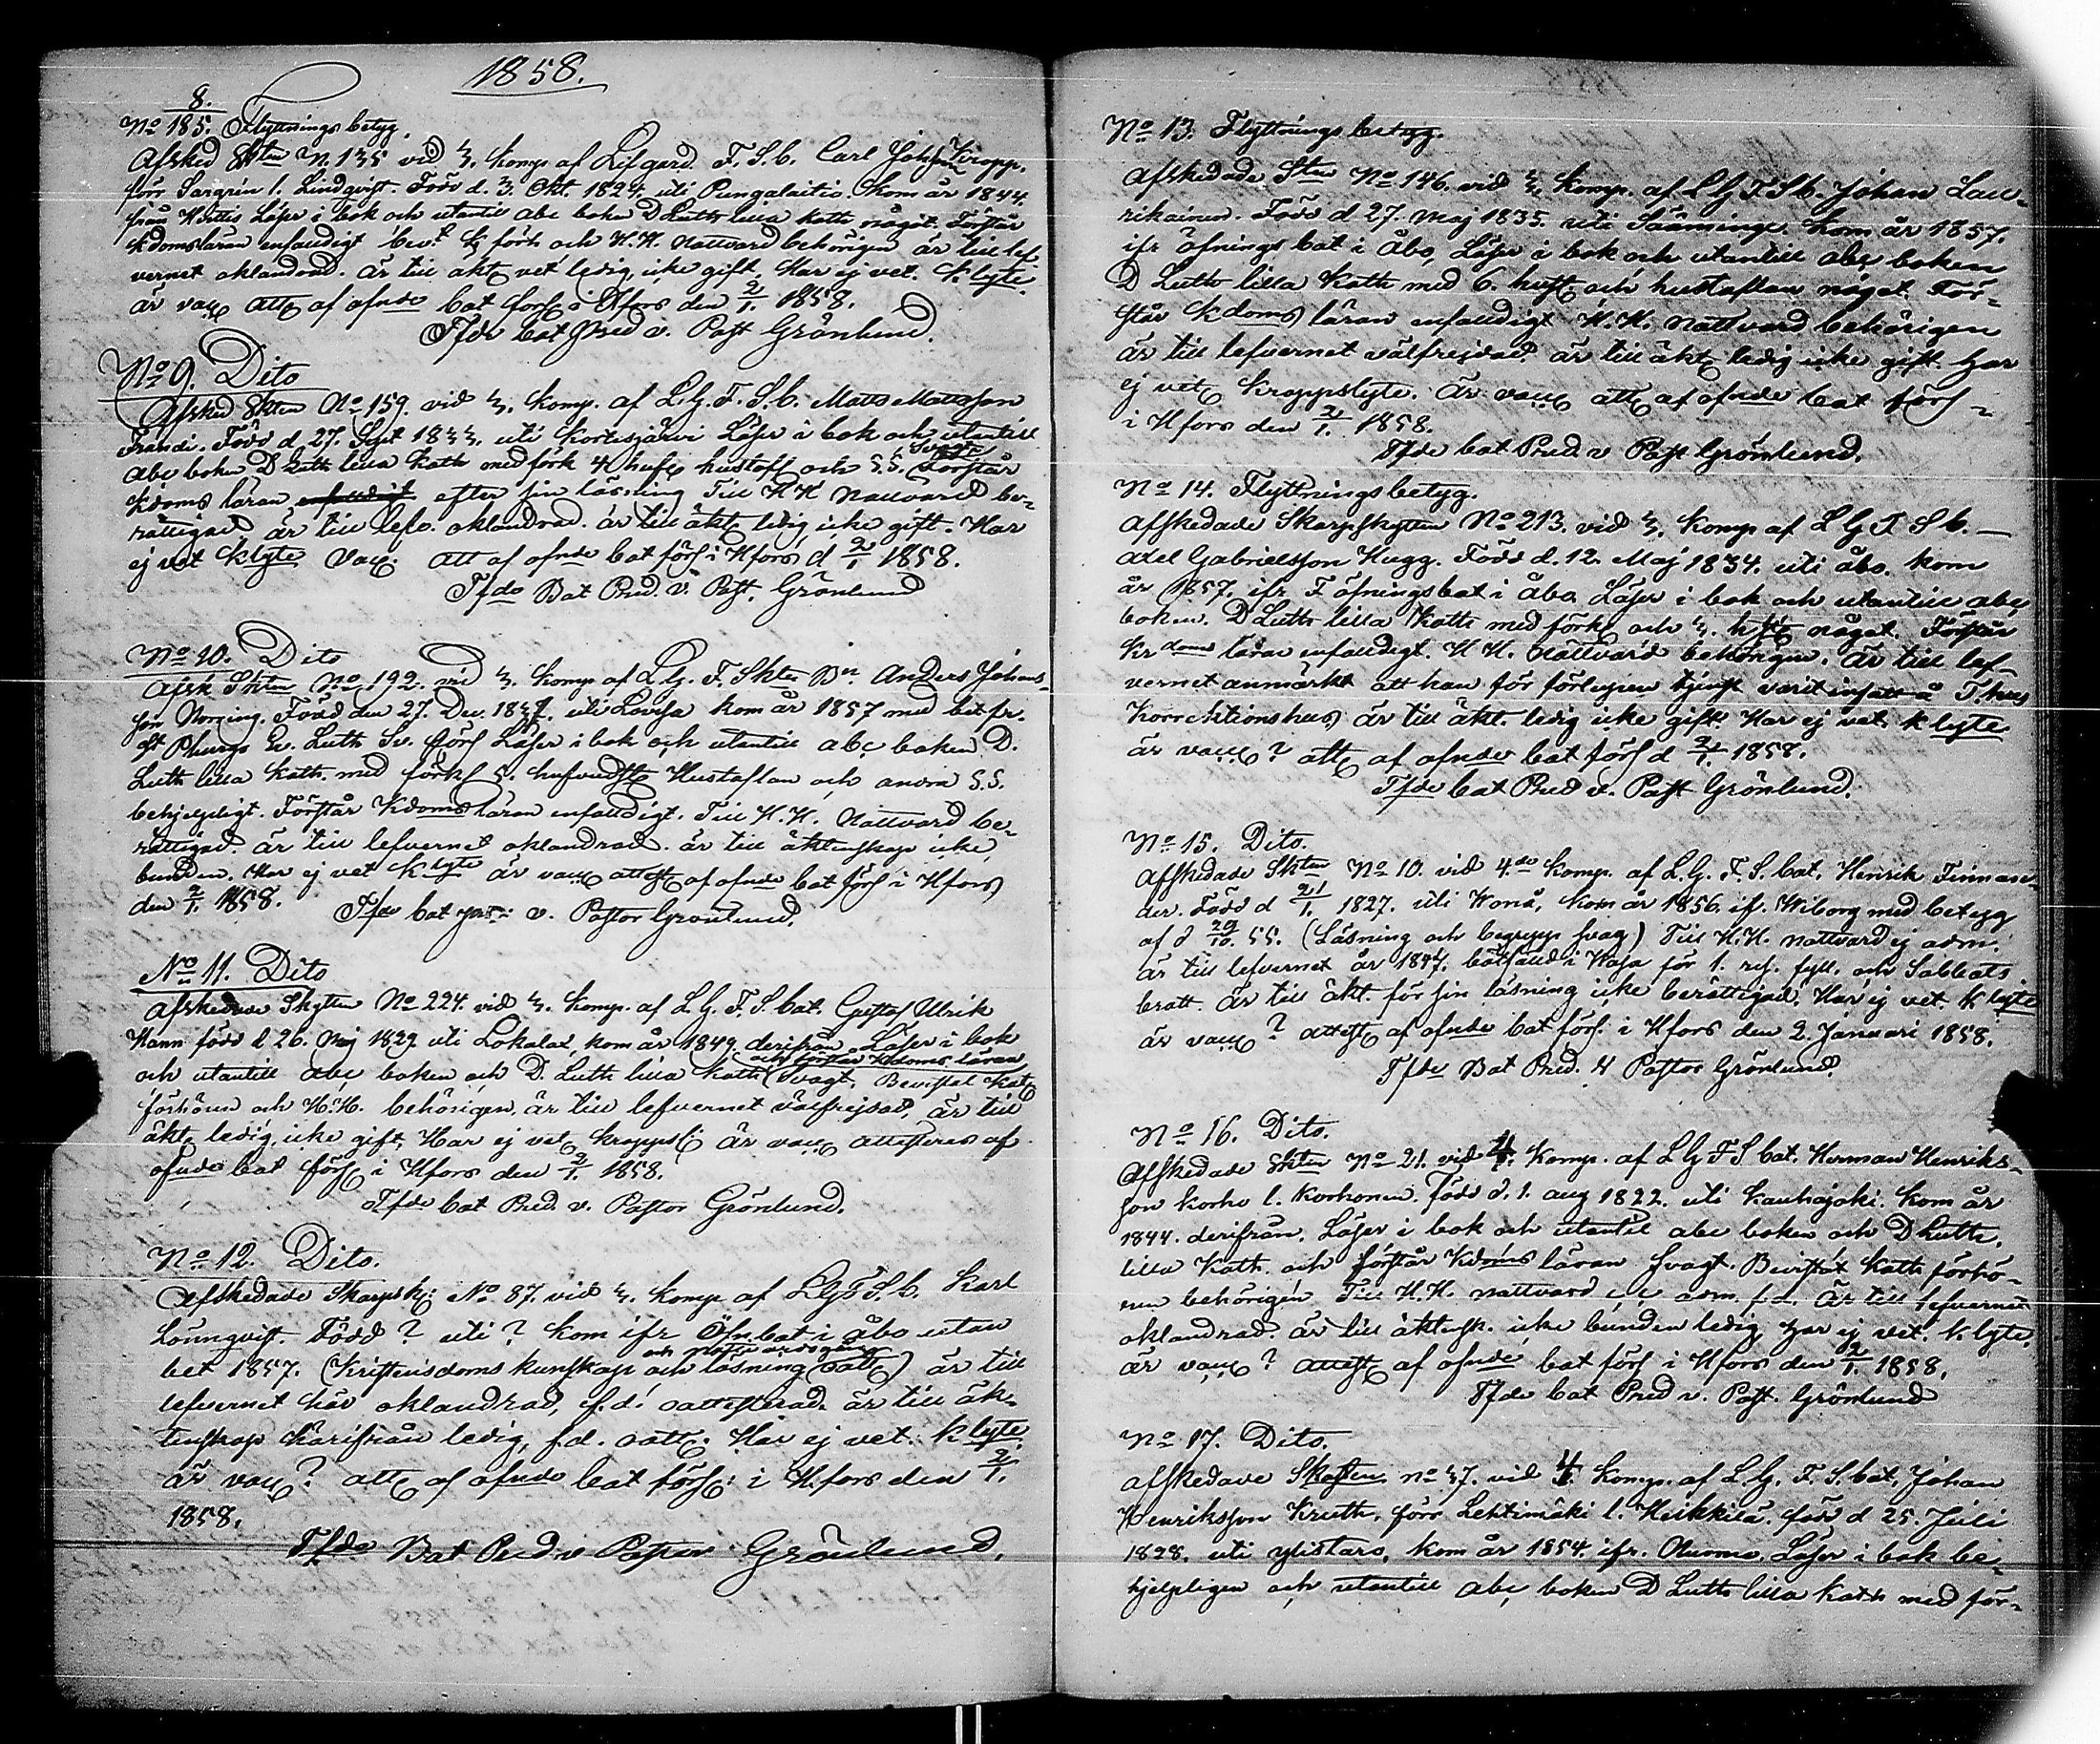 1858.
8.
No 185. Flyttnings betyg.
Afsked Skten N. 135 vid 3. komp af Lifgard. F. S. b. Carl Johan Kropp,
förr Sargrén l. Lindqvist. Född d. 3. Okt. 1824. uti Pungalaitio. Kom år 1844.
från Hvittis Läser i bok och utantill abc boken D Luth lilla kath något. Förstår
kdomsläran enfaldigt bev. förh och H. H. Nattvard behörigen är till lef
vernet oklandrad. är till äkt vet ledig, icke gift. Har ej vet. K.lyte.
är vacc att af ofnde bat förs i Hfors den 2/1. 1858.
Tfde bat Pred v. Past Grönlund.
No 9. Dito
Afsked Skten No 159. vid 3. komp. af L. G. F. S. b. Matts Mattsson
Frandi. Född d. 27. Sept 1833. uti Kortesjärvi Läser i bok och utantill
Svagt
abc boken D Luth lilla Kath med förk 4 hufs hustafl och S.S. Förstår
Kdoms läran enfaldigt efter sin läsning Till H H Nattvard be-
rättigad, är till lefv. oklandrad. är till äkt ledig icke gift. Har
ej vet K lyte Vacc. att af ofnde bat förs i Hfors d 2/1 1858.
Tfde Bat Pred. v. Past. Grönlund
No 10. Dito
Afsk Skten No 192. vid 3. komp af L. G. F. Skte Bn Anders Johans-
son Norring. Född den 27. Dec. 1837. uti Lovisa kom år 1857 med bet fr.
St Pburgs Ev. Luth Sv. förs Läser i bok och utantill abc boken D.
Luth lilla Kath. med förkl 5. hufvudst Hustaflan och andra S.S.
behjelpligt. Förstår Kdomsläran enfaldigt. Till H. H. Nattvard be-
rättigad. är till lefvernet oklandrad. är till äktenskap icke
bunden. Har ej vet K lyte är vacc attest af ofnde bat förs i Hfors
den 2/1. 1858.
Tfde bat pred: v. Pastor Grönlund.
No 11. Dito
Afskedade Skytten No 224. vid 3. komp. af L. G. F. S. bat. Gustaf Ulrik
Hann född d 26. Maj 1829. uti Lokalat, kom år 1849. derifrån. Läser i bok
och förstår Kdoms läran
och utantill abc boken och D. Luth lilla Kath Svagt, Bevistat Kat
förhören och H. H. behörigen, är till lefvernet välfrejdad, är till
äkt. ledig icke gift. Har ej vet kroppsl: är vacc attesteras af
ofnde bat förs i Hfors den 2/1. 1858.
Tfde bat Pred. v. Pastor Grönlund.
No 12. Dito.
Afskedade Skarpsk: No 87. vid 3. komp af L G F S. b. Karl
Lönnqvist. Född ? uti ? kom ifr Öfn. bat i åbo utan
och nattvardsgång
bet 1857. (Kristendoms kunskap och läsning oatt) är till
lefvernet här oklandrad, f.d. oattesterad. är till äk-
tenskap härifrån ledig, f.d. oatt. Har ej vet. K lyte.
är vacc? att af ofnde bat förs: i Hfors den 2/1.
1858.
Tfde Bat Pred v Pastor Grönlund.
No 13. Flyttnings betyg.
Afskedade Sten No 146. vid 3. komp. af L G F S b. Johan Lau-
rikainen. Född d 27. Maj 1835. uti Sääminge. Kom år 1857.
ifr öfnings bat i Åbo, Läser i bok och utantill abc boken
D Luth lilla Kath med 6. hufs och hustaflan något. För-
står Kdoms läran enfaldigt H. H. Nattvard behörigen
är till lefvernet välfrejdad, är till äkt ledig icke gift. har
ej vet Kroppslyte. är vacc att af ofnde bat förs-
i Hfors den 2/1. 1858.
Tfde bat Pred. v Past Grönlund.
No 14. Flyttningsbetyg.
Afskedade Skarpskytten No 213. vid 3. komp af L G F S b. -
Axel Gabrielsson Hugg. Född d. 12. Maj 1834. uti Åbo. kom
år 1857. ifr F öfningsbat i Åbo Läser i bok och utantill abc
boken. D Luth lilla Kath med förk och 3. hft något. Förstår
Kr doms läran enfaldigt. H H. Nattvard behörigen. är till lef-
vernet anmärkt att han för förlupen tjenst varit insatt å T.hus
Korrektionshus är till äkt. ledig icke gift. Har ej vet K lyte
är vacc? att af ofnde bat förs d 2/1. 1858.
Tfde bat Pred v. Past Grönlund.
No 15. Dito.
Afskedade Skten No 10. vid 4.de komp. af L. G. F. S. bat. Henrik Finnan-
der. Född d 21/1. 1827. uti Wånå, kom år 1856. if. Wiborg med betyg
af d 29/10. 55. (Läsning och begrepp svag) Till H. H. nattvard ej adm.
är till lefvernet år 1847. bötfälld i Wasa för 1. res. fyll. och Sabbats
brott. är till äkt. för sin läsning icke berättigad. Har ej vet. K lyte
är vacc? attest af ofnde bat förs. i Hfors den 2. Januari 1858.
Tfde Bat Pred. v Pastor Grönlund.
No 16. Dito.
Afskedade Skten No 21. vid 4. komp. af L G F S bat. Herman Henriks-
son Korhi l. Korhonen. född d. 1. aug 1822. uti Kauhajoki. Kom år
1844. derifrån. Läser i bok och utantill abc boken och D Luth.
lilla Kath. och förstår Kdoms läran svagt. Bevistat Kath förhö-
ren behörigen Till H. H. nattvard adm. f.d. är till lefvernet
oklandrad. är till äktensk. icke bunden ledig har ej vet. K lyte.
är vacc? attest af ofnde bat förs i Hfors den 2/1. 1858.
Tfde bat Pred v. Past. Grönlund
No 17. Dito.
Afskedade Skytten no 37. vid 4. komp. af L. G. F. S. bat, Johan
Henriksson Kruth, förr Lehtimäki l. Heikkilä. född d 25. Juli
1828. uti Ylistaro, kom år 1854. ifr. Nurmo. Läser i bok be-
hjelpligen och utantill abc boken D Luth lilla kath med för-